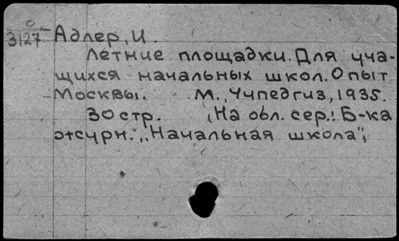 с
3127 Адлер, И.
Летние площадки. Для уча-
щихся начальных школ. Опыт
Москвы. М., Учпедгиз, 1935.
30 стр. /На обл. сер.: Б-ка
журн. "Начальная школа"/